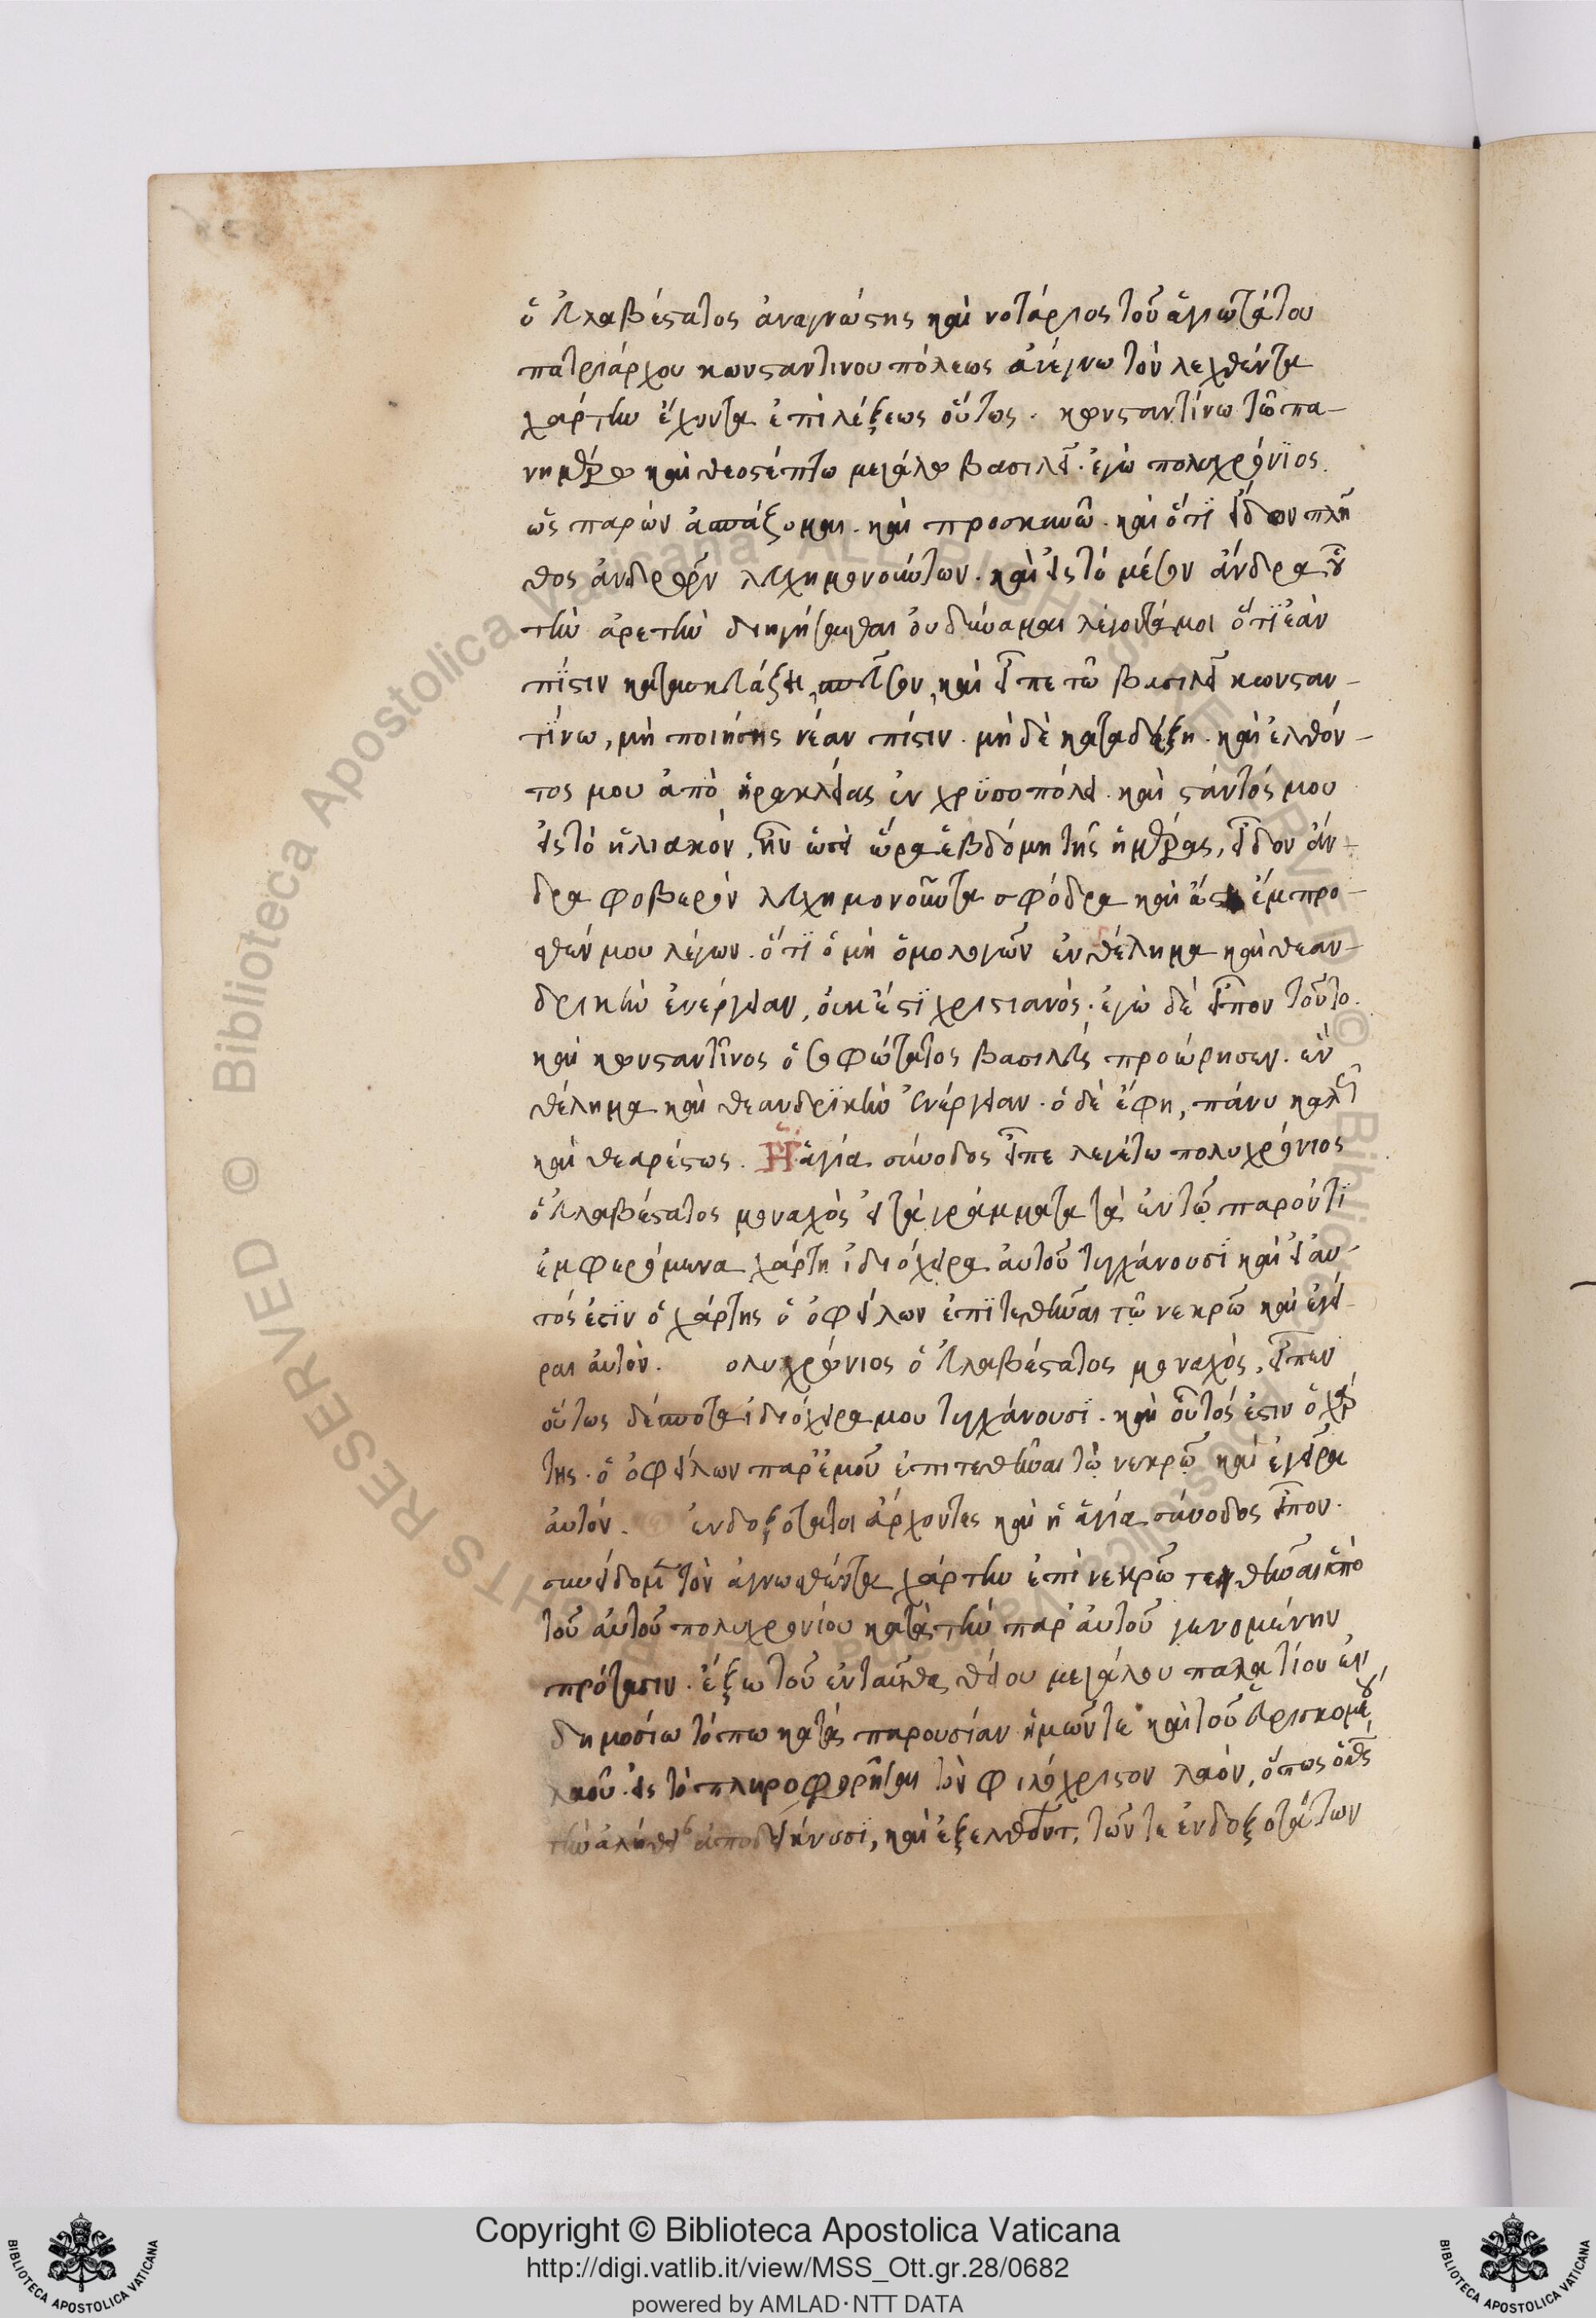 ὁ εὐλαβέστατος ἀναγνώστης καὶ νοτάριος τοῦ ἁγιωτάτου
πατριάρχου κωνσταντινουπόλεως ἀνέγνω τὸν λεχθέντα
χάρτην ἔχοντα ἐπὶ λέξεως οὕτως. κωνσταντίνω τῶ πα-
νημέρω καὶ θεοσέπτω μεγάλω βασιλεῖ. ἐγὼ πολυχρόνιος
ὡς παρὼν ἀσπάζομαι. καὶ προσκυνῶ. καὶ ὅτι εἶδον πλῆ
θος ἀνδρῶν λευχημονούντων. καὶ εἰς τὸ μέσον ἄνδρα οὗ
τὴν ἀρετὴν διηγήσασθαι οὐ δύναμαι λέγοντά μοι ὅτι ἐὰν
πίστιν κατασκευάζει, σπεῦσον, καὶ εἶπε τῶ βασιλεῖ κωνσταν-
τίνω, μὴ ποιήσης νέαν πίστιν. μὴ δὲ καταδέξη. καὶ ἐλθόν-
τος μου ἀπὸ ἡρακλείας ἐν χρυσοπόλει. καὶ στάντός μου
εἰς τὸ ἡλιακόν, ἦν ὡσεὶ ὥρα ἑβδόμη τῆς ἡμέρας, εἶδον ἄν-
δρα φοβερὸν λευχημονοῦντα σφόδρα καὶ ἔστη ἔμπρο-
σθέν μου λέγων. ὅτι ὁ μὴ ὁμολογῶν ἓν θέλημα καὶ θεαν-
δρικὴν ἐνέργειαν, οὐκ ἔστι χριστιανός. ἐγὼ δὲ εἶπον τοῦτο.
καὶ κωνσταντῖνος ὁ σοφώτατος βασιλεὺς προώρησεν. ἓν
θέλημα καὶ θεανδρικὴν ἐνέργειαν. ὁ δὲ ἔφη, πάνυ καλῶς
καὶ θεαρέστως. Ἡ ἁγία σύνοδος εἶπε λεγέτω πολυχρόνιος
ὁ εὐλαβέστατος μοναχὸς εἰ τὰ γράμματα τὰ ἐν τῶ παρόντι
ἐμφερόμενα χάρτη ἰδιόχειρα αὐτοῦ τυγχάνουσι καὶ εἰ αὐ-
τός ἐστιν ὁ χάρτης ὁ ὀφείλων ἐπιτεθῆναι τῶ νεκρῶ καὶ ἐγεῖ-
ραι αὐτόν. ολυχρόνιος ὁ εὐλαβέστατος μοναχὸς, εἶπεν
οὕτως δέσποτα ἰδιόχειρα μου τυγχάνουσι. καὶ οὗτός ἐστιν ὁ χάρ
της. ὁ ὀφείλων παρ' ἐμοῦ ἐπιτεθῆναι τῶ νεκρῶ καὶ ἐγεῖραι
αὐτόν. ἐνδοξότατοι ἄρχοντες καὶ ἡ ἁγία σύνοδος εἶπον.
συνείδομεν τὸν ἀγνωσθέντα χάρτην ἐπὶ νεκρῶ τεθῆναι ὑπὸ
τοῦ αὐτοῦ πολυχρονίου κατὰ τὴν παρ' αὐτοῦ γενομένην
πρότασιν. ἔξω τοῦ ἐνταῦθα θείου μεγάλου παλατίου ἐν
δημοσίω τόπω κατὰ παρουσίαν ἡμῶν τε καὶ τοῦ εὑρισκομένου
λαοῦ εἰς τὸ πληροφορῆσαι τὸν φιλόχριστον λαόν, ὅπως ὁ θεὸς
τὴν ἀλήθειαν ἀποδείκνυσι, καὶ ἐξελθόντων τῶν τε ἐνδοξοτάτων
Copyright © Biblioteca Apostolica Vaticana
http://digi.vatlib.it/view/MSS_Ott.gr.28/0682
powered by AMLAD·NTT DATA